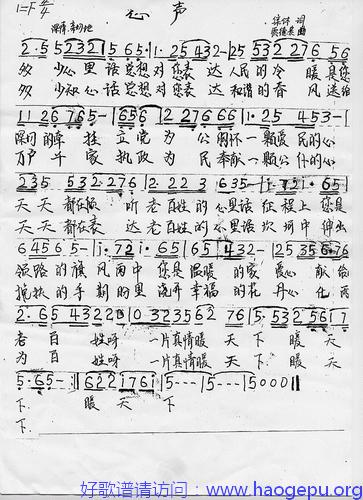 心声
1=F 4/4
深情 亲切地
集体 词
曲
2·55 232 | 5 65· | 1· 25 432 - | 25 532 276 56
多少心里话总想对您表达人民的冷暖是您
多少知心话总想对您表达和谐的春风送给
11 26 765 - | 656 | 2 27666 | 1·25 453 - |
深切的牵挂立党为公胸怀一颗爱民的心
万户千家执政为民奉献一颗公仆的心
235 532·276 | 2 22 3 | 635 - | i·72 i·65 |
天天都在听老百姓的心里话征程上您是
天天都在表达老百姓的心里话坎坷中伸出
6456 5 - | i·72 i·65 | 65 432 - | 25 356 76
领路的旗风雨中您是温暖的家爱心献给
搀扶的手新时里浇开幸福的花丹心化为
2·65 4322 | 0 323562 76 | 5·532 56 17
老百姓呀一片真情暖天下暖天
为百姓呀一片真情暖天下暖天
5·65 - :‖ 622 176i | 5 - - - | 5 - - - | 5000 ‖
下 暖天下
下
好歌谱请访问：www.haogepu.org